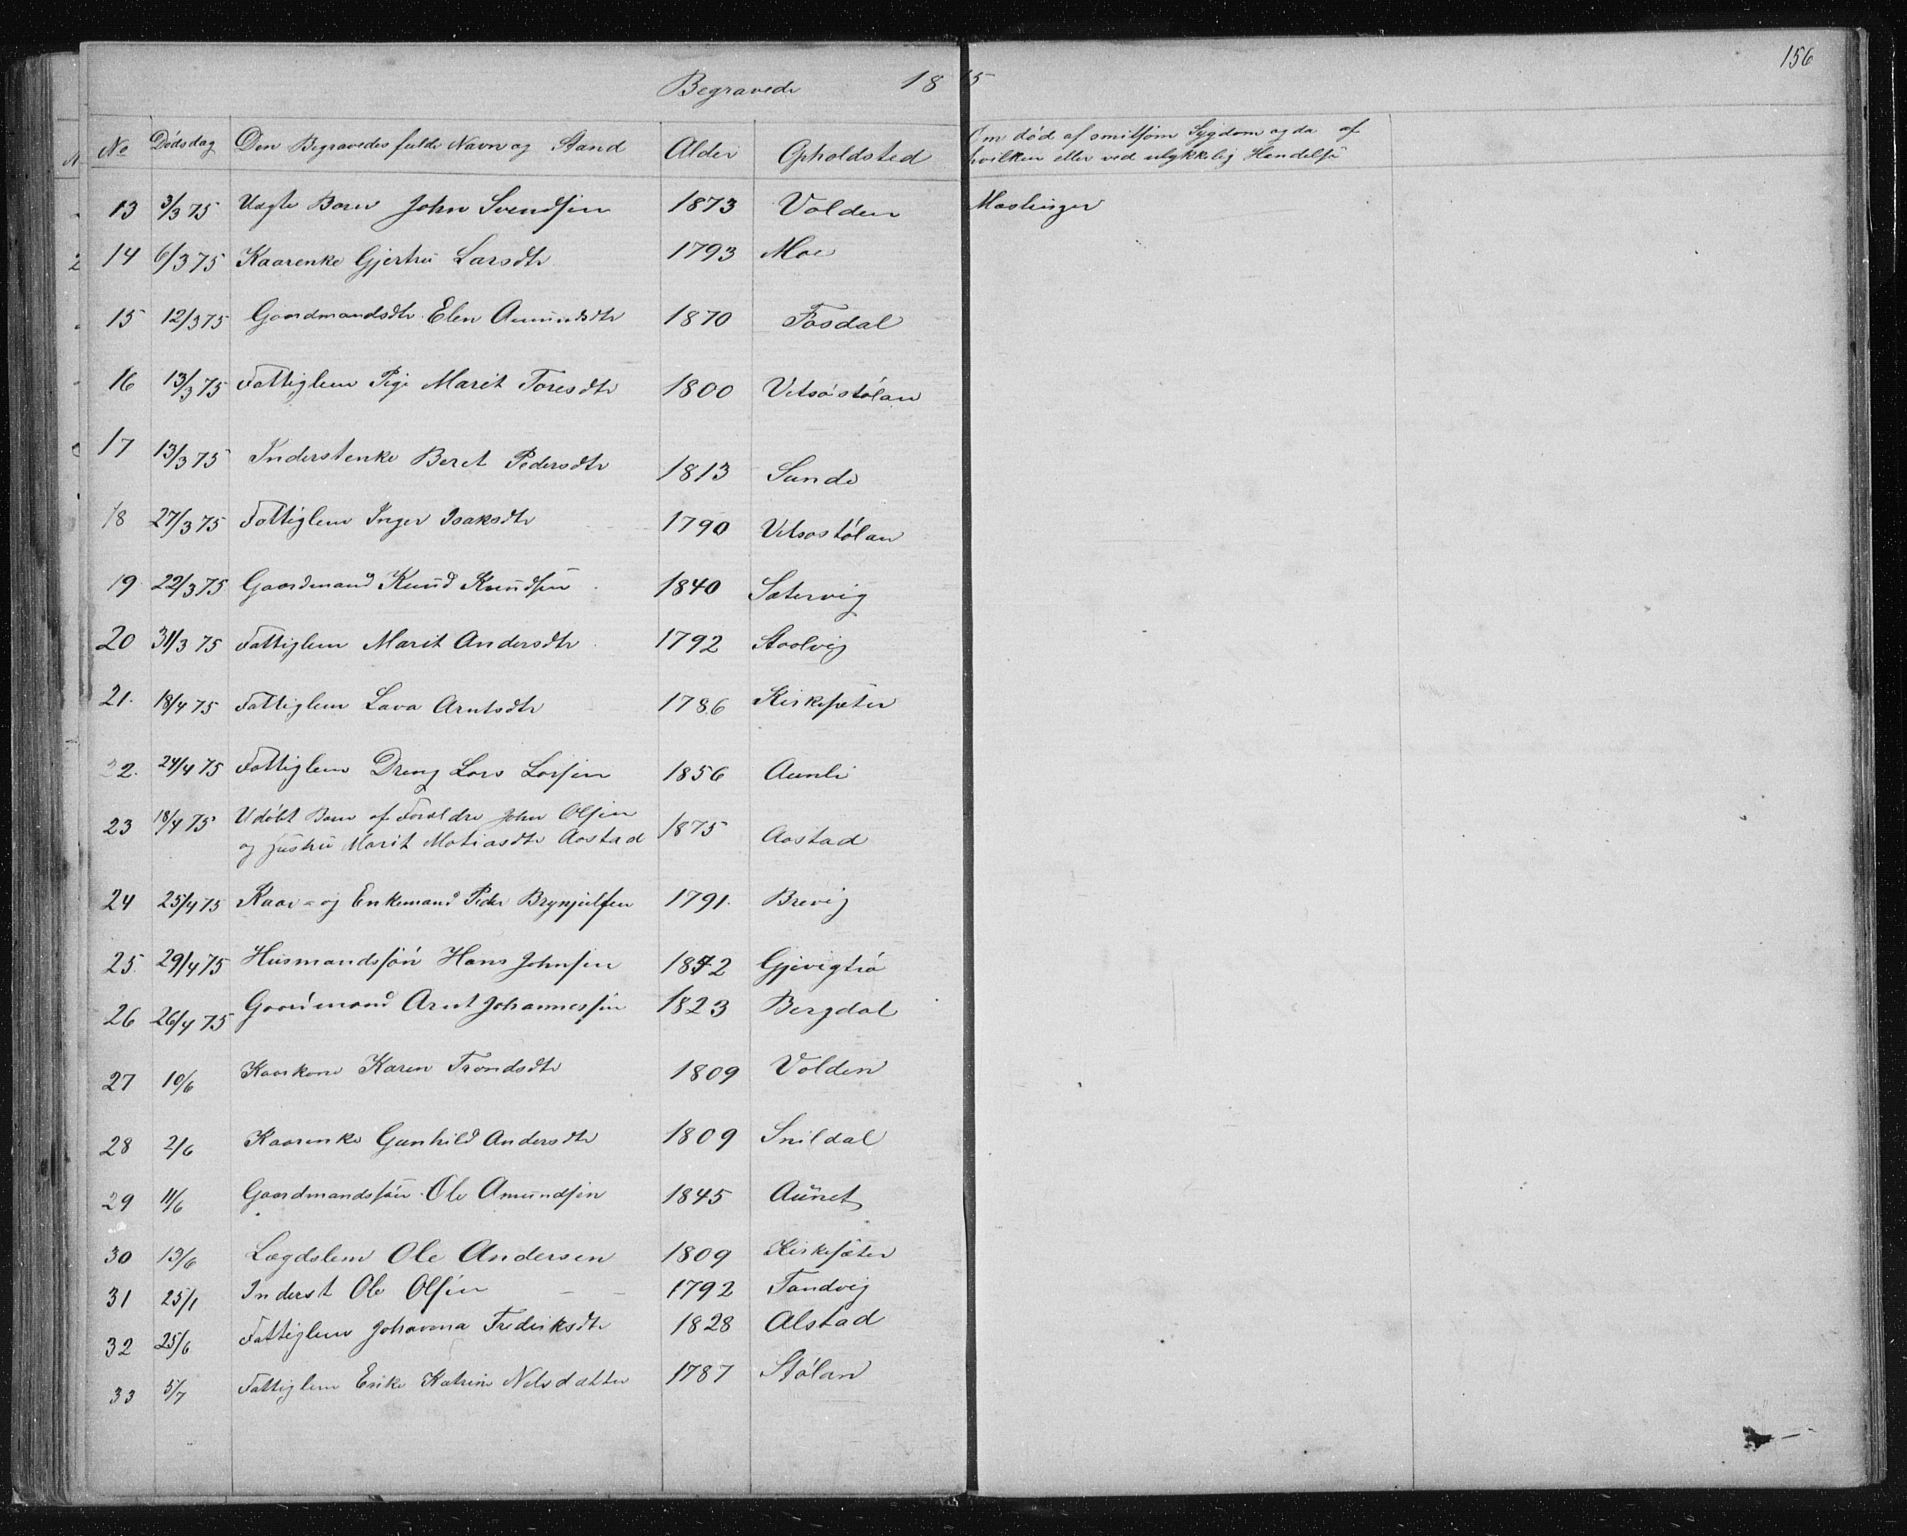 156
Begravede 18 75
No Dødsdag Den Begravedes fulde Navn og Stand Alder Opholdsted Om død af smitsom Sygdom og da af
hvilken eller ved ulykkelig Hændelse
13 3/3 75 Uægte Barn John Svendsen 1873 Volden Mæslinger
14 6/3 75 Kaarenke Gjertru Larsdtr 1793 Moe
15 12/3 75 Gaardmandsdtr Elen Amundsdtr 1870 Fosdal
16 13/3 75 Fattiglem Pige Marit Toresdtr 1800 Vitsøstølan
17 13/3 75 Inderstenke Beret Pedersdtr 1813 Sunde
18 27/3 75 Fattiglem Inger Isaksdtr 1790 Vitsøstølan
19 22/3 75 Gaardmand Knud Knudsen 1840 Sætervig
20 31/3 75 Fattiglem Marit Andersdtr 1792 Staolvig
21. 18/4 75 Fattiglem Lava Arntsdtr 1786 Kirkesæter
22. 24/4 75 Fattiglem Dreng Lars Larsen 1856 Aunli
23 18/4 75 Udøbt Barn af Forældre John Olsen
og Justru Marit Matiasdtr Aastad 1875 Aastad
24 25/4 75 Kaar- og Enkemand Peder Brynjulfsen 1791. Brevig
25. 29/4 75 Husmandssøn Hans Johnsen 1872 Gjevigtrø
26 26/4 75 Gaardmand Arnt Johannessen 1823 Bergdal
27 10/6 Kaarkone Karen Trondsdtr 1809 Volden
28 2/6 Kaarenke Gunhild Andersdtr 1809 Snildal
29 11/6 Gaardmandssøn Ole Amundsen 1845 Aunet
30 13/6 Lægdslem Ole Andersen 1809 Kirkesæter
31 25/1 Inderst Ole Olsen 1792 Tandvig
32 25/6 Fattiglem Johanna Frediksdtr 1828 Alstad
33 5/7 Fattiglem Enke Katrine Nelsdatter 1787 Stølan